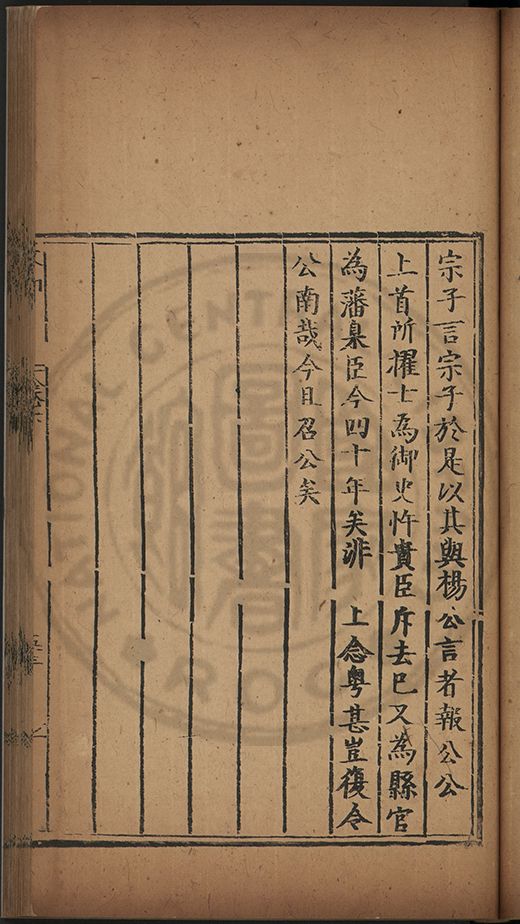 宗子言宗子於是以其與楊公言者報公公
上首所擢士為御史忤貴臣斥去已又為縣官
為藩臬臣今四十年矣非　上念粤甚豈復令
公南哉今且召公矣